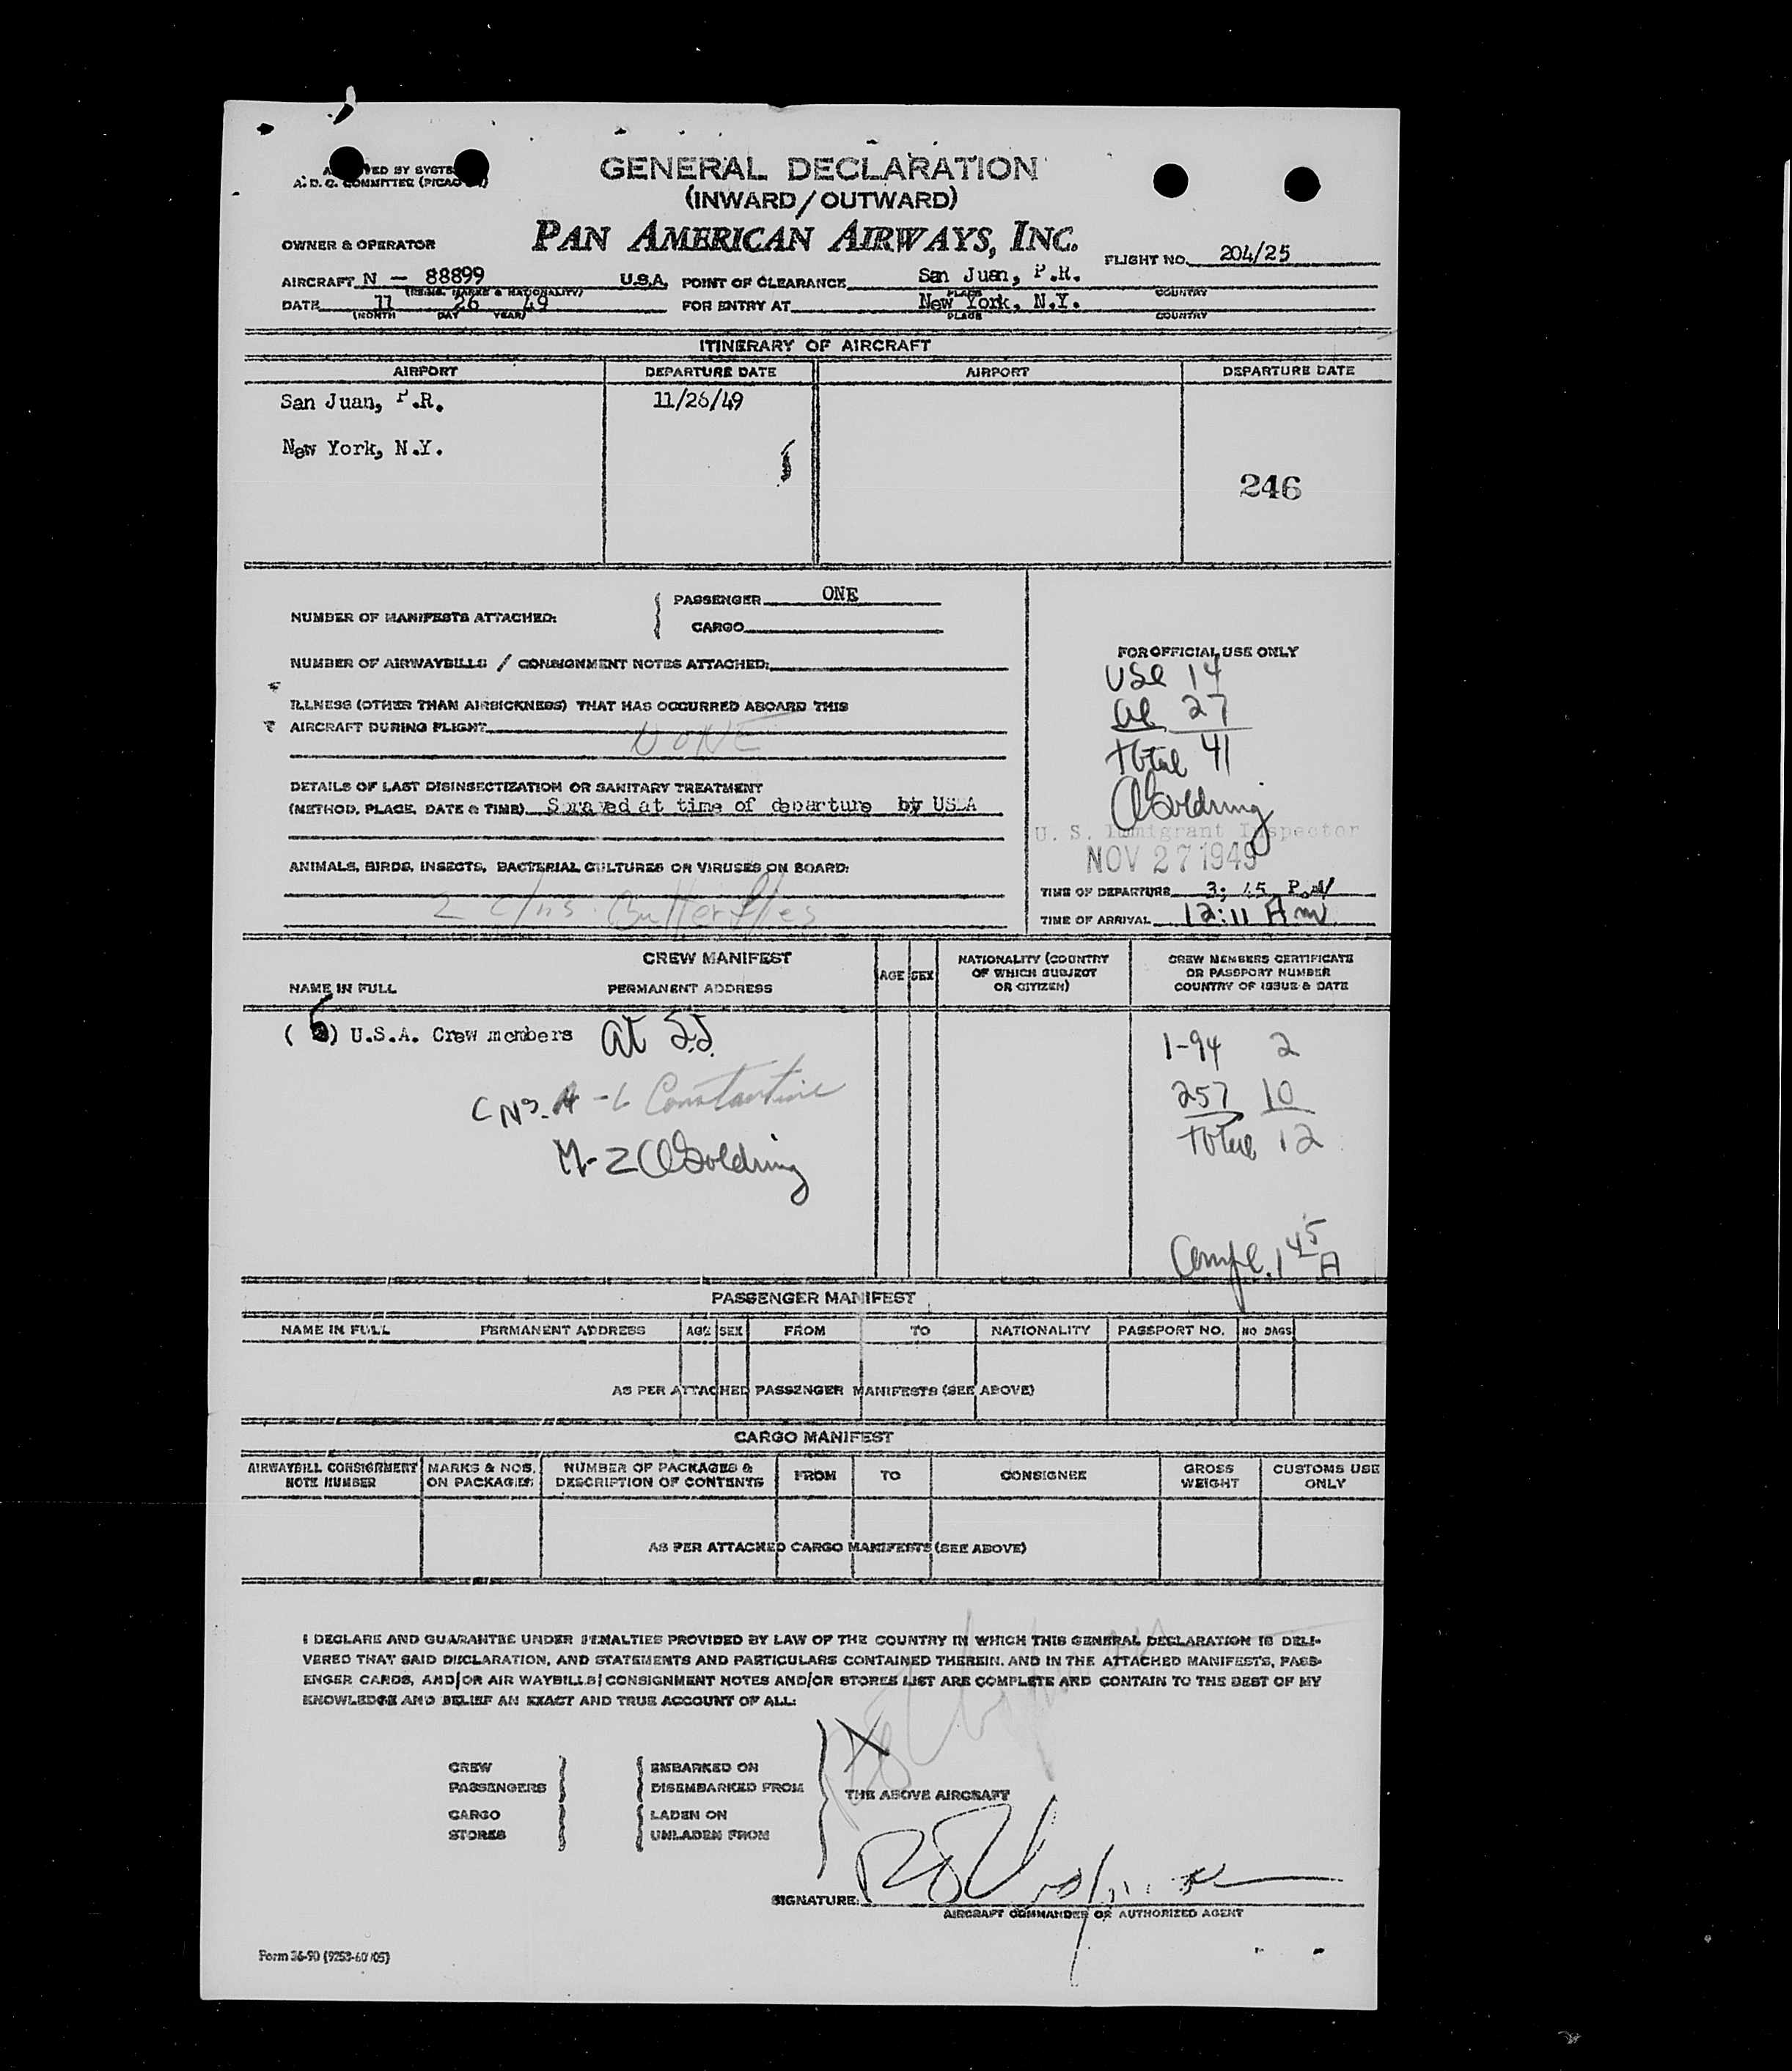 GENERAL DECLARATION
(INWARD/OUTWARD)
PAN AMERICAN AIRWAYS, INC.
BY SYSTE
A. D. C. COMMITTEE (PICAO
OWNER & OPERATOR
FLIGHT NO. 204/25
AIRCRAFT N - 88899 U.S.A. POINT OF CLEARANCE San Juan, P.R.
(REING. MARKS & NATIONALITY) PLACE COUNTRY
DATE 11 26 49 FOR ENTRY AT New York, N.Y.
(MONTH DAY YEAR) PLACE COUNTRY
ITINERARY OF AIRCRAFT
AIRPORT DEPARTURE DATE AIRPORT DEPARTURE DATE
San Juan, P.R. 11/26/49
New York, N.Y.
246
NUMBER OF MANIFESTS ATTACHED: PASSENGER ONE
CARGO
NUMBER OF AIRWAYBILLS / CONSIGNMENT NOTES ATTACHED:
ILLNESS (OTHER THAN AIRSICKNESS) THAT HAS OCCURRED ABOARD THIS
AIRCRAFT DURING FLIGHT NONE
DETAILS OF LAST DISINSECTIZATION OR SANITARY TREATMENT
(METHOD, PLACE, DATE & TIME) Sprayed at time of departure by USA
ANIMALS, BIRDS, INSECTS, BACTERIAL CULTURES OR VIRUSES ON BOARD:
2 c/ns. Butterflies
FOR OFFICIAL USE ONLY
USC 14
al 27
total 41
Goldring
U. S. Immigrant Inspector
NOV 27 1949
TIME OF DEPARTURE 3; 45 P.M
TIME OF ARRIVAL 12:11 Am
CREW MANIFEST
NAME IN FULL PERMANENT ADDRESS AGE SEX NATIONALITY (COUNTRY OF WHICH SUBJECT OR CITIZEN) CREW MEMBERS CERTIFICATE OR PASSPORT NUMBER COUNTRY OF ISSUE & DATE
(6) U.S.A. Crew members at S.J.
A-L Constantine
M-Z Goldring
1-94 2
257 10
total 12
Compl. 1 45 A
PASSENGER MANIFEST
NAME IN FULL PERMANENT ADDRESS AGE SEX FROM TO NATIONALITY PASSPORT NO. NO BAGS
AS PER ATTACHED PASSENGER MANIFESTS (SEE ABOVE)
CARGO MANIFEST
AIRWAYBILL CONSIGNMENT NOTE NUMBER MARKS & NOS. ON PACKAGES NUMBER OF PACKAGES & DESCRIPTION OF CONTENTS FROM TO CONSIGNEE GROSS WEIGHT CUSTOMS USE ONLY
AS PER ATTACHED CARGO MANIFESTS (SEE ABOVE)
I DECLARE AND GUARANTEE UNDER PENALTIES PROVIDED BY LAW OF THE COUNTRY IN WHICH THIS GENERAL DECLARATION IS DELI-
VERED THAT SAID DECLARATION, AND STATEMENTS AND PARTICULARS CONTAINED THEREIN. AND IN THE ATTACHED MANIFESTS, PASS-
ENGER CARDS, AND/OR AIR WAYBILLS/CONSIGNMENT NOTES AND/OR STORES LIST ARE COMPLETE AND CONTAIN TO THE BEST OF MY
KNOWLEDGE AND BELIEF AN EXACT AND TRUE ACCOUNT OF ALL:
CREW EMBARKED ON
PASSENGERS DISEMBARKED FROM
THE ABOVE AIRCRAFT
CARGO LADEN ON
STORES UNLADEN FROM
SIGNATURE:
AIRCRAFT COMMANDER OR AUTHORIZED AGENT
Form 36-90 (9253-60/05)